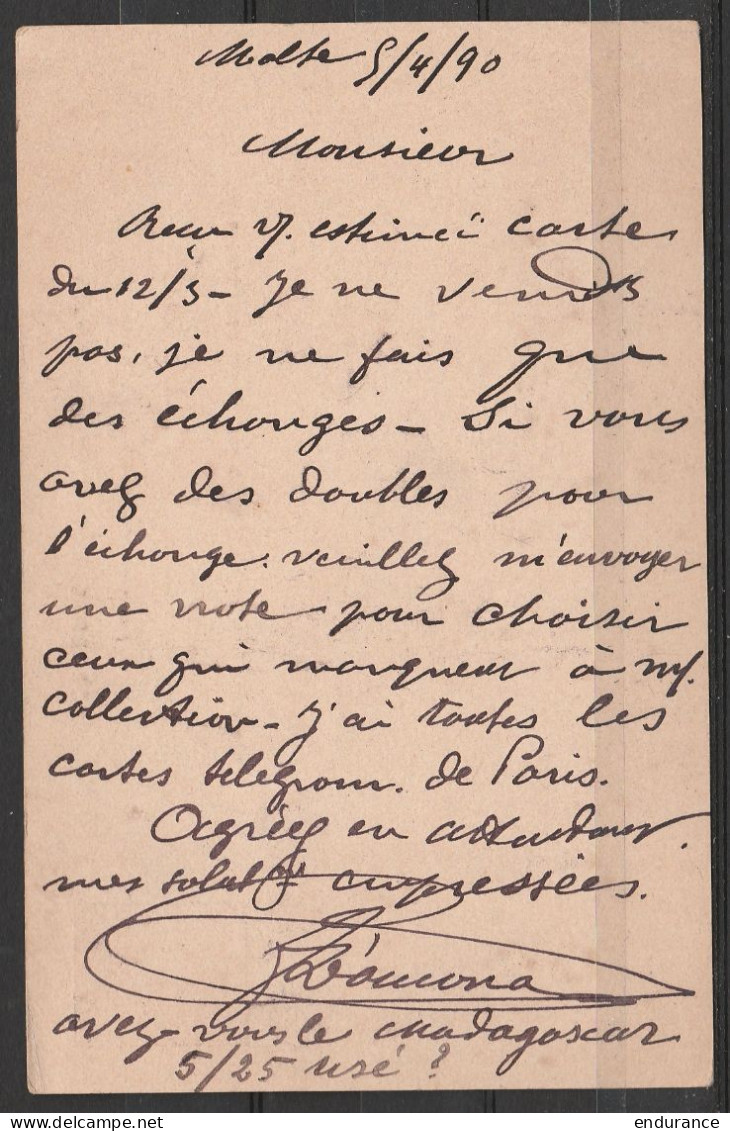 Malte 5/4/90
Monsieur
Reçu v/. estimée cartes
du 12/3 - Je ne vends
pas, je ne fais que
des échanges - Si vous
avez des doubles pour
l'échange. veuillez m'envoyer
une note pour choisir
ceux qui manquent à m/.
collection - J'ai toutes les
cartes telegram. de Paris.
Agréez en attendant.
mes salut.ns empressées.
avez-vous le Madagascar
5/25 usé ?
endurance